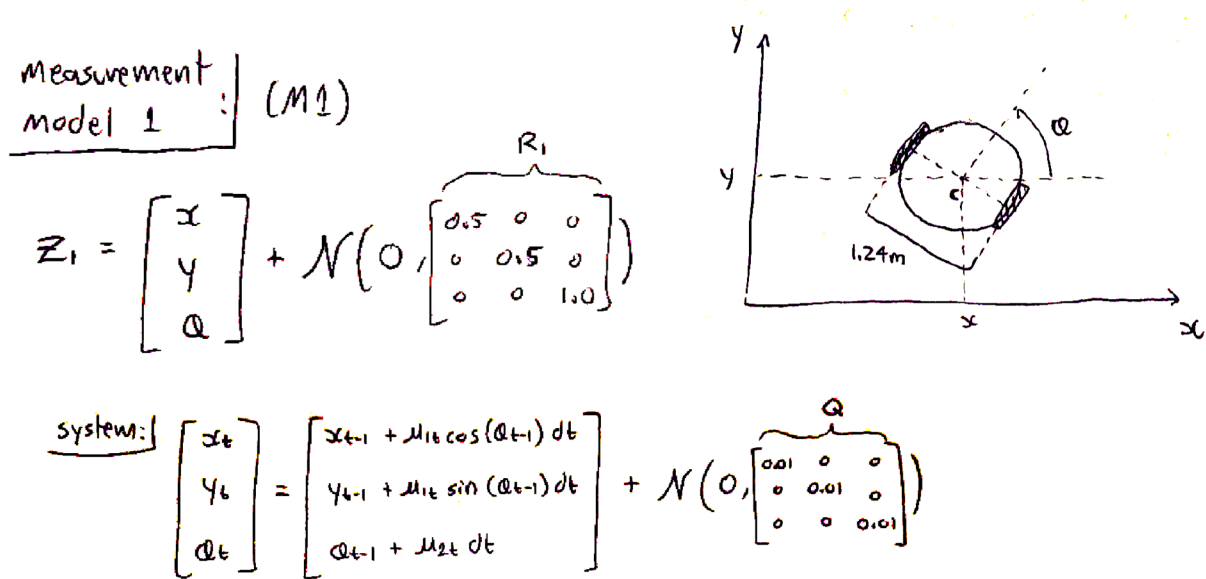 measurement
model 1 : (M1)
R₁
Z₁ = [x y Q] + N(0, [0.5 0 0
0 0.5 0
0 0 1.0])
y
Q
y
c
1.24m
x
x
system: [xt yt Qt] = [xt-1 + μ1t cos(Qt-1) dt
yt-1 + μ1t sin(Qt-1) dt
Qt-1 + μ2t dt] + N(0, [0.01 0 0
0 0.01 0
0 0 0.01])
Q